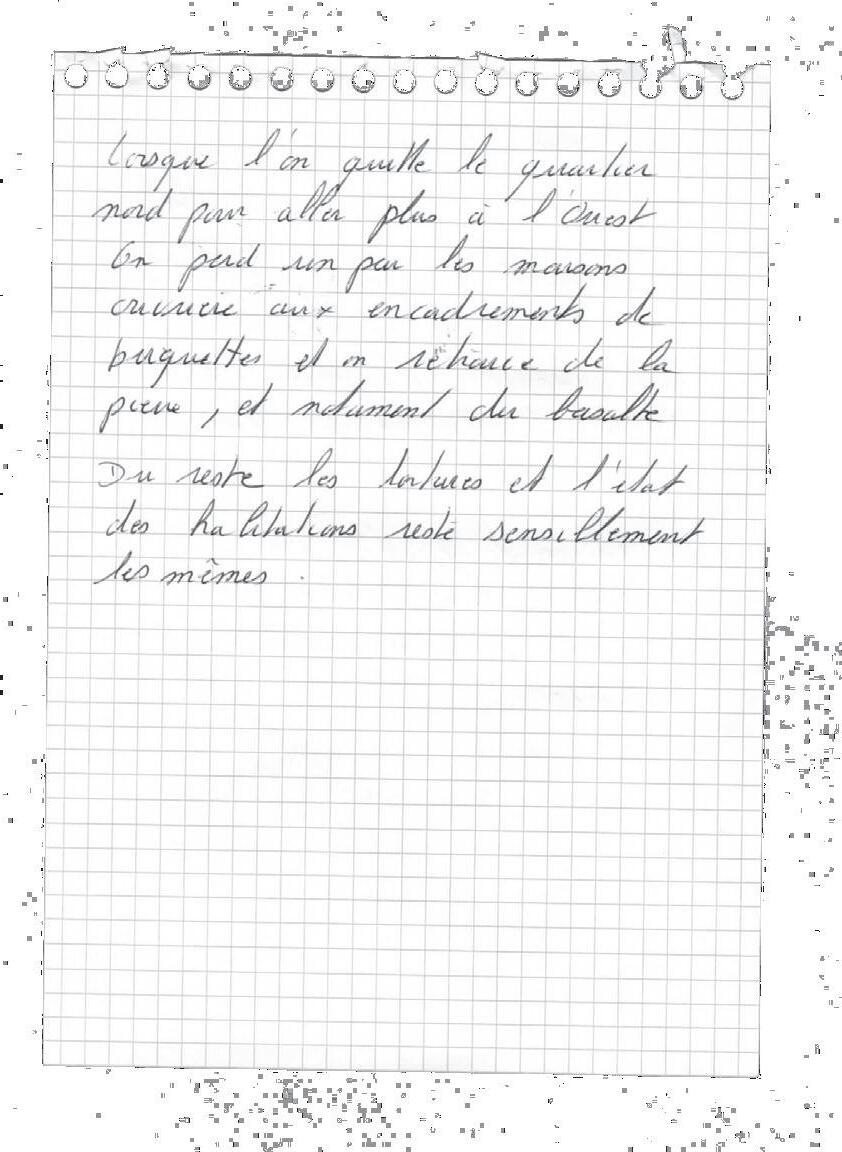 Lorsque l'on quitte le quartier
nord pour aller plus à l'Ouest
On perd un peu les maisons
ouvrière aux encadrements de
briquettes et on retrouve de la
pierre, et notament du basalte
Du reste les toitures et l'état
des habitations reste sensiblement
les mêmes.